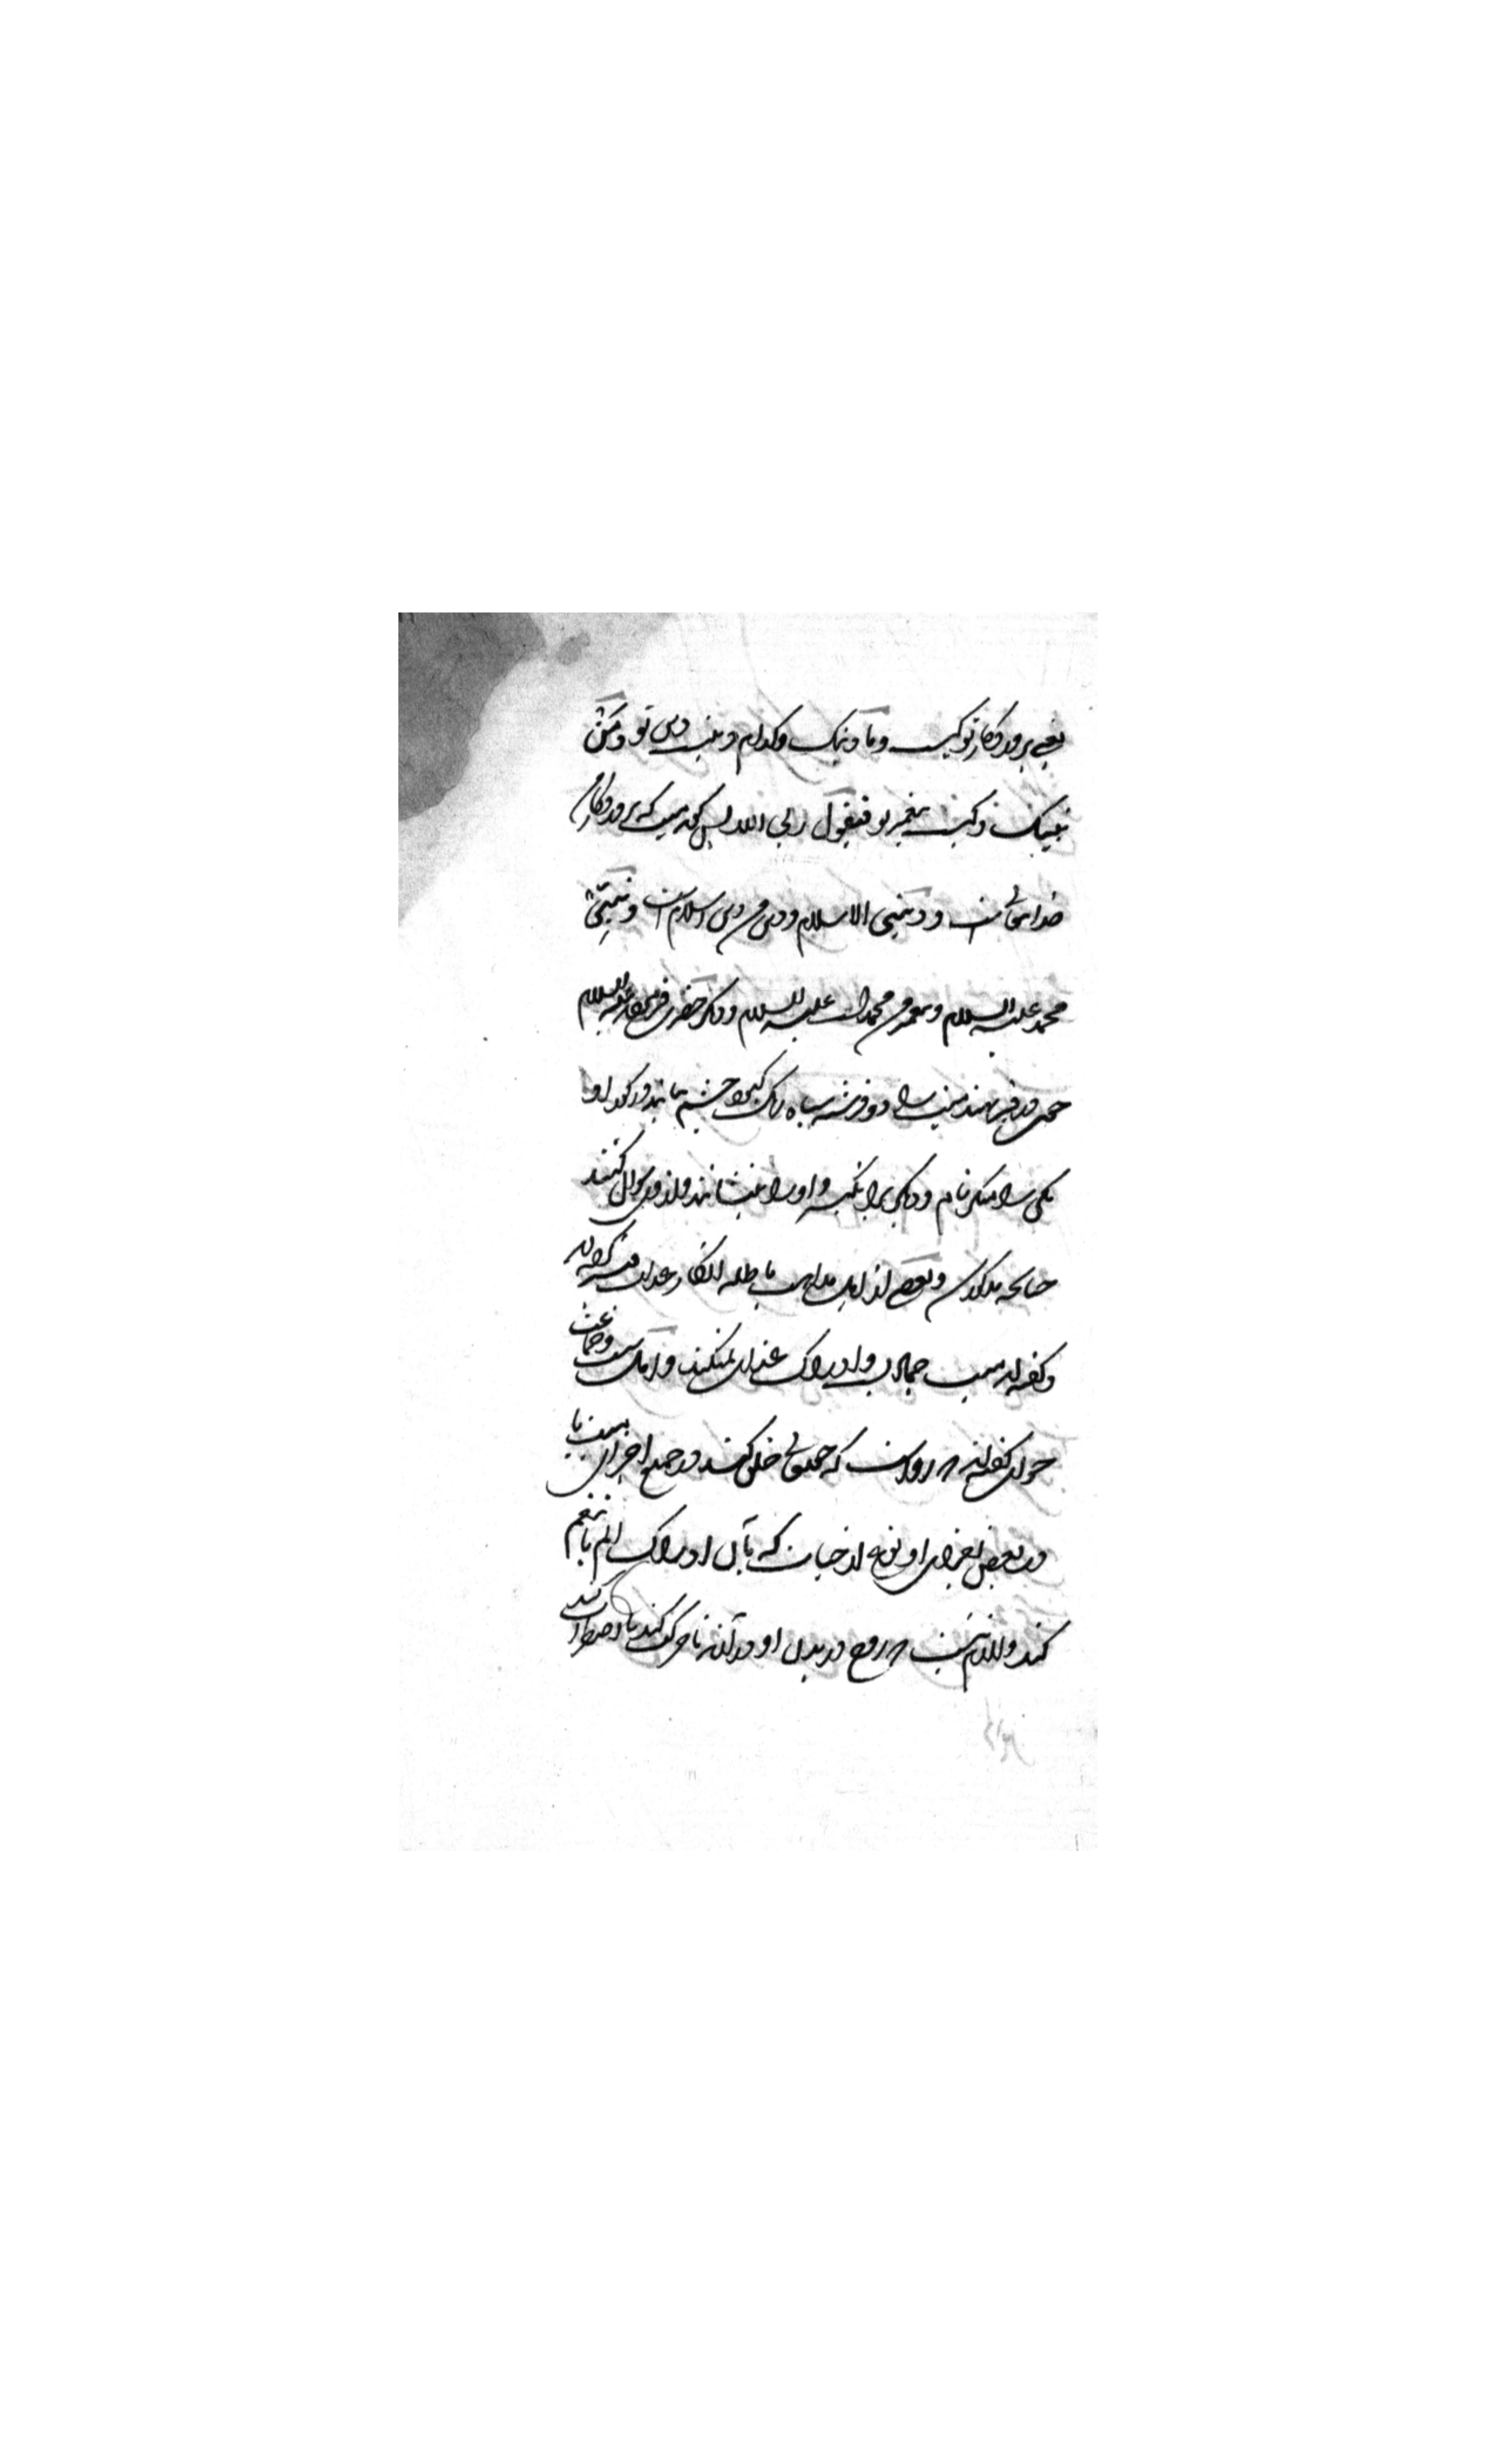 یعنی پروردگار تو کیست وما دینک وکدام دینست دین تو ومن
نبیک وکیست پیغمبر تو فیقول ربی الله پس گوید میت که پروردگار من
خدایتعالی است و دینی الاسلام و دین من دین اسلام است ونبیی
محمد علیه السلام و پیغمبر من محمد است علیه السلام و دیگر حضرت فرموده علیه السلام
چون در قبر نهند میت را دو فرشته سیاه رنگ کبود چشم بیایند در گور او
یکی را منکر نام و دیگری را نکیر و او را بنشانند و از وی سوال کنند
چنانچه مذکور شد و بعضی از اهل مذاهب باطله انکار عذاب قبر کرده اند
و گفته اند میت جماد است و ادراک عذاب نمیکند و اهل سنت وجماعت
جواب گفته اند که رواست که حق تعالی خلق کند در جمیع اجزای میت یا
در بعض اجزای او نوعی از حیات که بآن ادراک الم یا تنعم
کند و لازم نیست که روح در بدن او در آید تا حرکت کند یا اضطراب کند